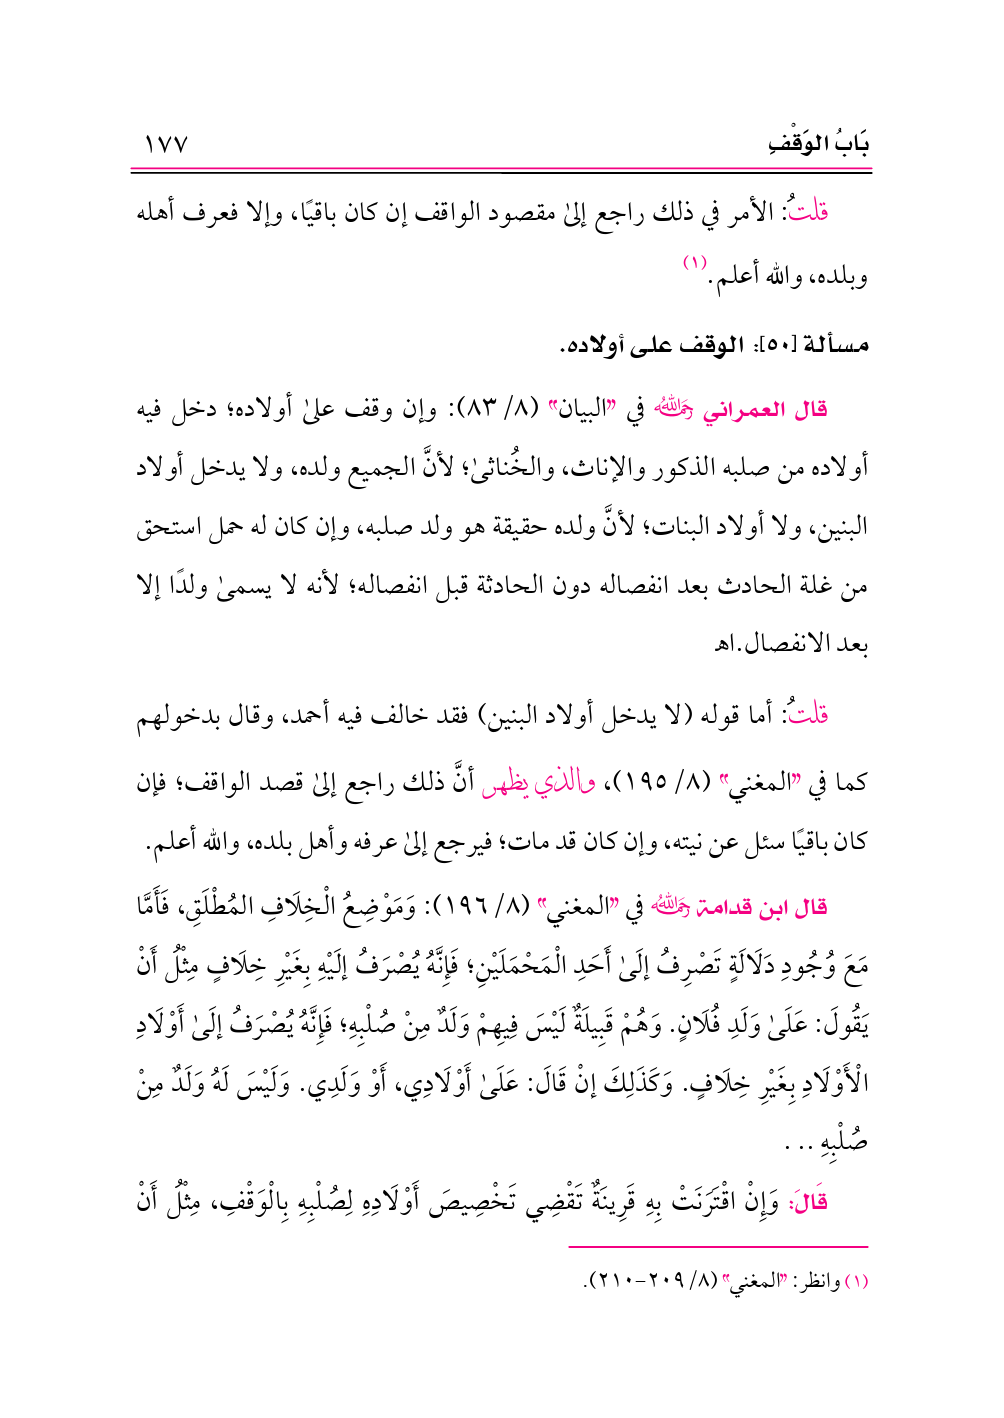 بَابُ الوَقْفِ ١٧٧
قلتُ: الأمر في ذلك راجع إلىٰ مقصود الواقف إن كان باقيًا، وإلا فعرف أهله
وبلده، والله أعلم.(١)
مسألة [٥٠]: الوقف على أولاده.
قال العمراني رَحِمَهُ اللهُ في "البيان" (٨/ ٨٣): وإن وقف علىٰ أولاده؛ دخل فيه
أولاده من صلبه الذكور والإناث، والخُناثىٰ؛ لأنَّ الجميع ولده، ولا يدخل أولاد
البنين، ولا أولاد البنات؛ لأنَّ ولده حقيقة هو ولد صلبه، وإن كان له حمل استحق
من غلة الحادث بعد انفصاله دون الحادثة قبل انفصاله؛ لأنه لا يسمىٰ ولدًا إلا
بعد الانفصال.اهـ
قلتُ: أما قوله (لا يدخل أولاد البنين) فقد خالف فيه أحمد، وقال بدخولهم
كما في "المغني" (٨/ ١٩٥)، والذي يظهر أنَّ ذلك راجع إلىٰ قصد الواقف؛ فإن
كان باقيًا سئل عن نيته، وإن كان قد مات؛ فيرجع إلىٰ عرفه وأهل بلده، والله أعلم.
قال ابن قدامة رَحِمَهُ اللهُ في "المغني" (٨/ ١٩٦): وَمَوْضِعُ الْخِلَافِ المُطْلَقِ، فَأَمَّا
مَعَ وُجُودِ دَلَالَةٍ تَصْرِفُ إلَىٰ أَحَدِ الْمَحْمَلَيْنِ؛ فَإِنَّهُ يُصْرَفُ إلَيْهِ بِغَيْرِ خِلَافٍ مِثْلُ أَنْ
يَقُولَ: عَلَىٰ وَلَدِ فُلَانٍ. وَهُمْ قَبِيلَةٌ لَيْسَ فِيهِمْ وَلَدٌ مِنْ صُلْبِهِ؛ فَإِنَّهُ يُصْرَفُ إلَىٰ أَوْلَادِ
الْأَوْلَادِ بِغَيْرِ خِلَافٍ. وَكَذَلِكَ إنْ قَالَ: عَلَىٰ أَوْلَادِي، أَوْ وَلَدِي. وَلَيْسَ لَهُ وَلَدٌ مِنْ
صُلْبِهِ ...
قَالَ: وَإِنْ اقْتَرَنَتْ بِهِ قَرِينَةٌ تَقْضِي تَخْصِيصَ أَوْلَادِهِ لِصُلْبِهِ بِالْوَقْفِ، مِثْلُ أَنْ
(١) وانظر: "المغني" (٨/ ٢٠٩-٢١٠).